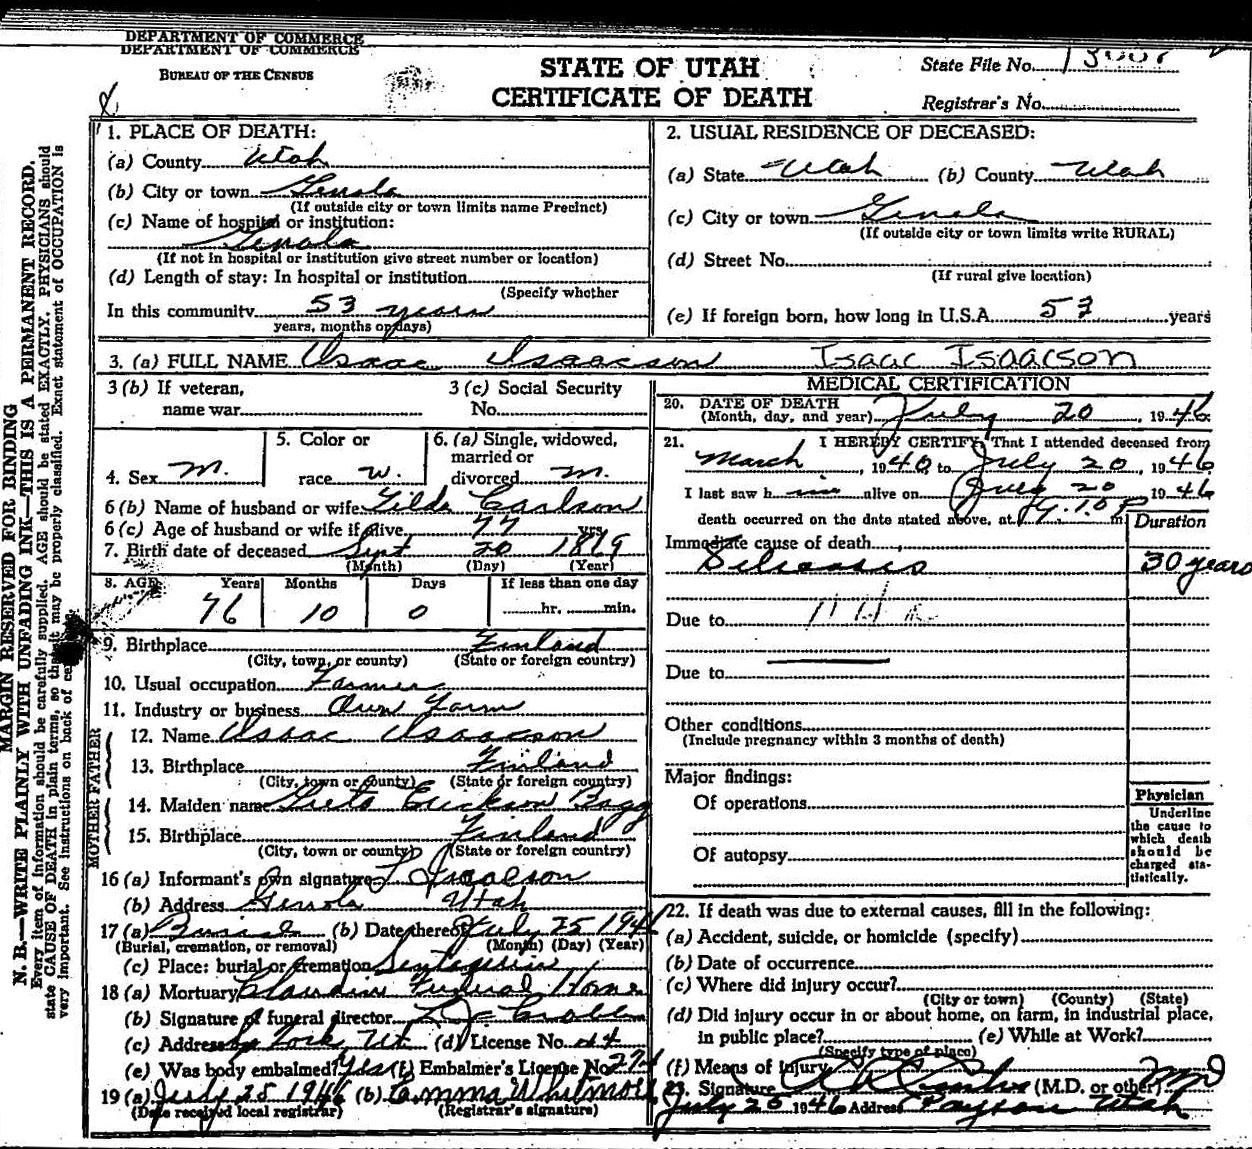 DEPARTMENT OF COMMERCE
DEPARTMENT OF COMMERCE
BUREAU OF THE CENSUS
STATE OF UTAH
CERTIFICATE OF DEATH
State File No.
Registrar's No.
MARGIN RESERVED FOR BINDING
N. B.—WRITE PLAINLY WITH UNFADING INK—THIS IS A PERMANENT RECORD.
Every item of information should be carefully supplied. AGE should be stated EXACTLY. PHYSICIANS should
state CAUSE OF DEATH in plain terms, so that it may be properly classified. Exact statement of OCCUPATION is
very important. See instructions on back of
1. PLACE OF DEATH:
(a) County Utah
(b) City or town Genola
(If outside city or town limits name Precinct)
(c) Name of hospital or institution:
Genola
(If not in hospital or institution give street number or location)
(d) Length of stay: In hospital or institution
(Specify whether
In this community 53 years
years, months or days)
2. USUAL RESIDENCE OF DECEASED:
(a) State Utah (b) County Utah
(c) City or town Genola
(If outside city or town limits write RURAL)
(d) Street No.
(If rural give location)
(e) If foreign born, how long in U.S.A. 53 years
3. (a) FULL NAME Isaac Isaacson Isaac Isaacson
3 (b) If veteran,
name war
3 (c) Social Security
No.
4. Sex M.
5. Color or
race W.
6. (a) Single, widowed,
married or
divorced M.
6 (b) Name of husband or wife Tilda Carlson
6 (c) Age of husband or wife if alive 77 yrs.
7. Birth date of deceased Sept 20 1869
(Month) (Day) (Year)
8. AGE Years Months Days If less than one day
76 10 0 hr. min.
9. Birthplace Finland
(City, town, or county) (State or foreign country)
10. Usual occupation Farmer
11. Industry or business Own Farm
FATHER
12. Name Isaac Isaacson
13. Birthplace Finland
(City, town or county) (State or foreign country)
MOTHER
14. Maiden name Greta Erickson Bagg
15. Birthplace Finland
(City, town or county) (State or foreign country)
16 (a) Informant's own signature Isaacson
(b) Address Genola Utah
17 (a) Burial (b) Date thereof July 25 1946
(Burial, cremation, or removal) (Month) (Day) (Year)
(c) Place: burial or cremation
18 (a) Mortuary Claudin Funeral Home
(b) Signature of funeral director
(c) Address (d) License No.
(e) Was body embalmed? Yes (f) Embalmer's License No.
19 (a) July 25 1946 (b) Emma Whitmore
(Date received local registrar) (Registrar's signature)
MEDICAL CERTIFICATION
20. DATE OF DEATH
(Month, day, and year) July 20, 1946
21. I HEREBY CERTIFY, That I attended deceased from
March, 1940, to July 20, 1946
I last saw him alive on July 20 1946
death occurred on the date stated above, at m
Duration
Immediate cause of death
Silicosis 30 years
Due to
Due to
Other conditions
(Include pregnancy within 3 months of death)
Major findings:
Of operations
Of autopsy
Physician
Underline
the cause to
which death
should be
charged sta-
tistically.
22. If death was due to external causes, fill in the following:
(a) Accident, suicide, or homicide (specify)
(b) Date of occurrence
(c) Where did injury occur?
(City or town) (County) (State)
(d) Did injury occur in or about home, on farm, in industrial place,
in public place? (e) While at Work?
(Specify type of place)
(f) Means of injury
23. Signature (M.D. or other) MD
July 25 1946 Address Payson Utah